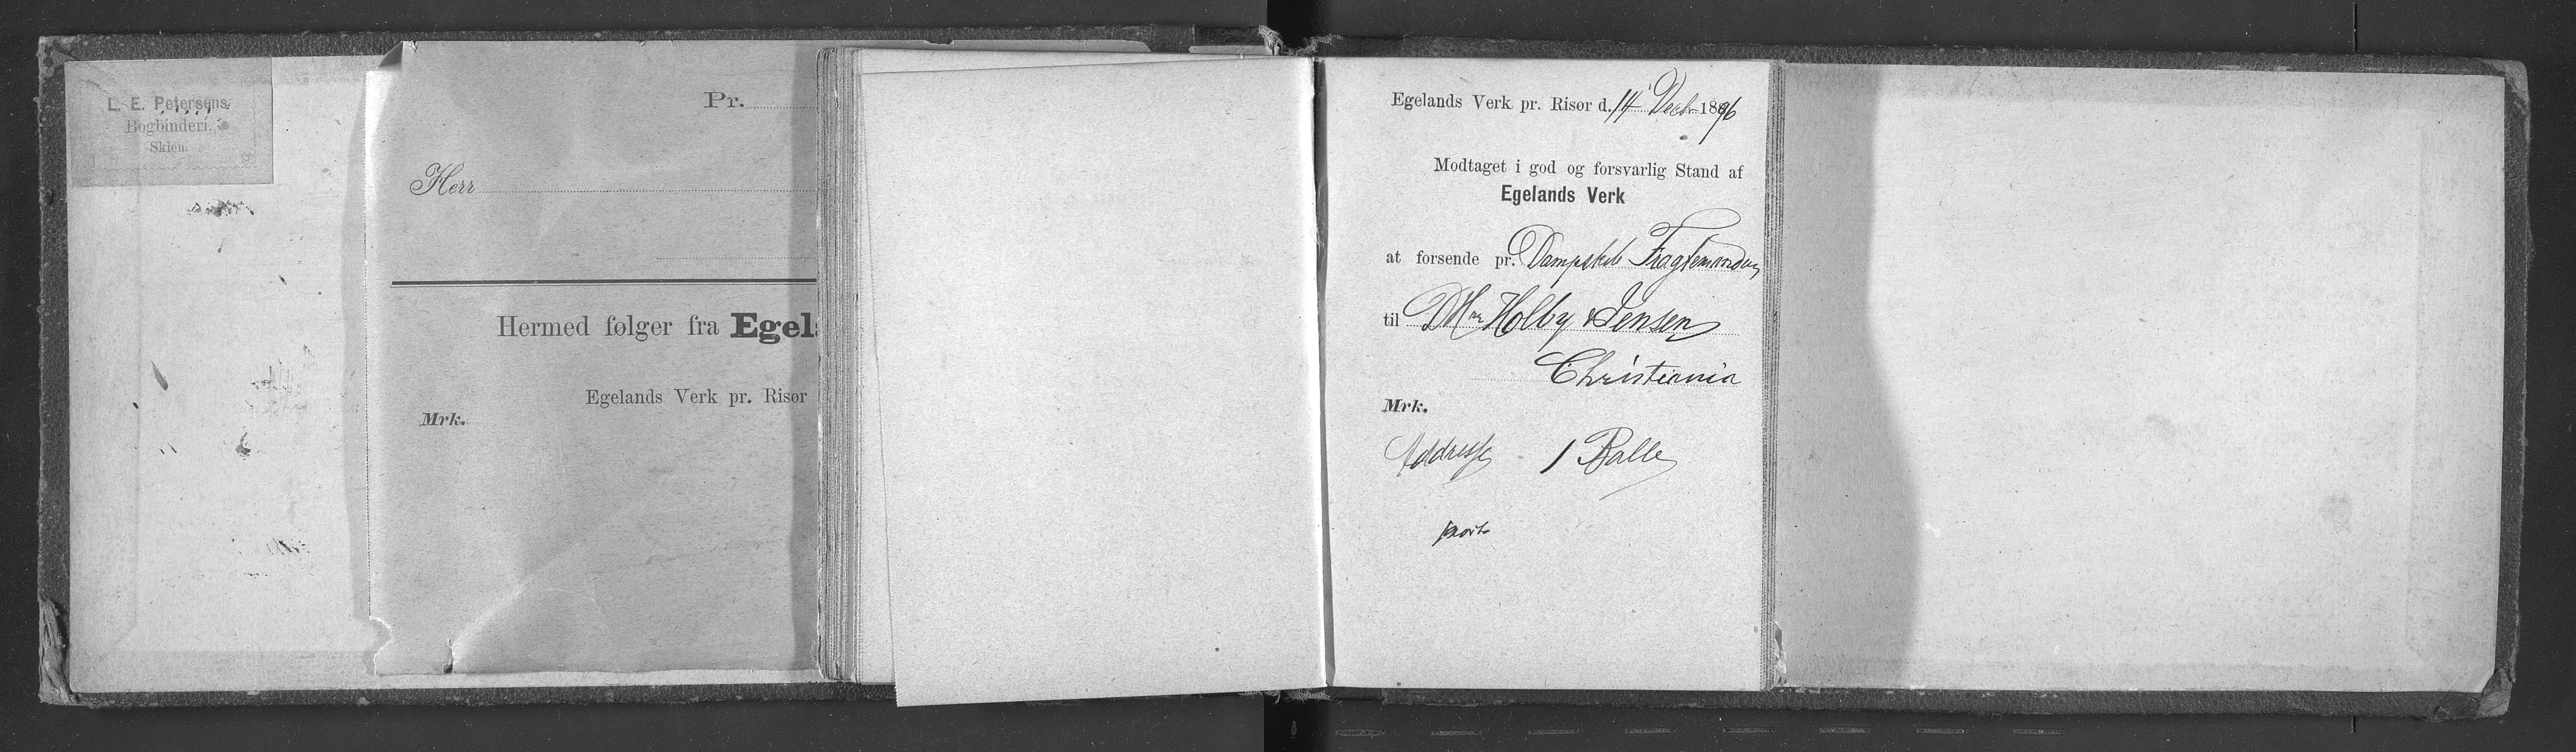 L. E. Petersens
Bogbinderi.
Skien.
Pr.
Herr
Hermed følger fra Egel
Egelands Verk pr. Risør
Mrk.
Egelands Verk pr. Risør d. 14 Decbr 1896
Modtaget i god og forsvarlig Stand af
Egelands Verk
at forsende pr. Dampskib Fragtemanden
til DHrr Holby & Jensen
Christiania
Mrk.
Addresse 1 Balle